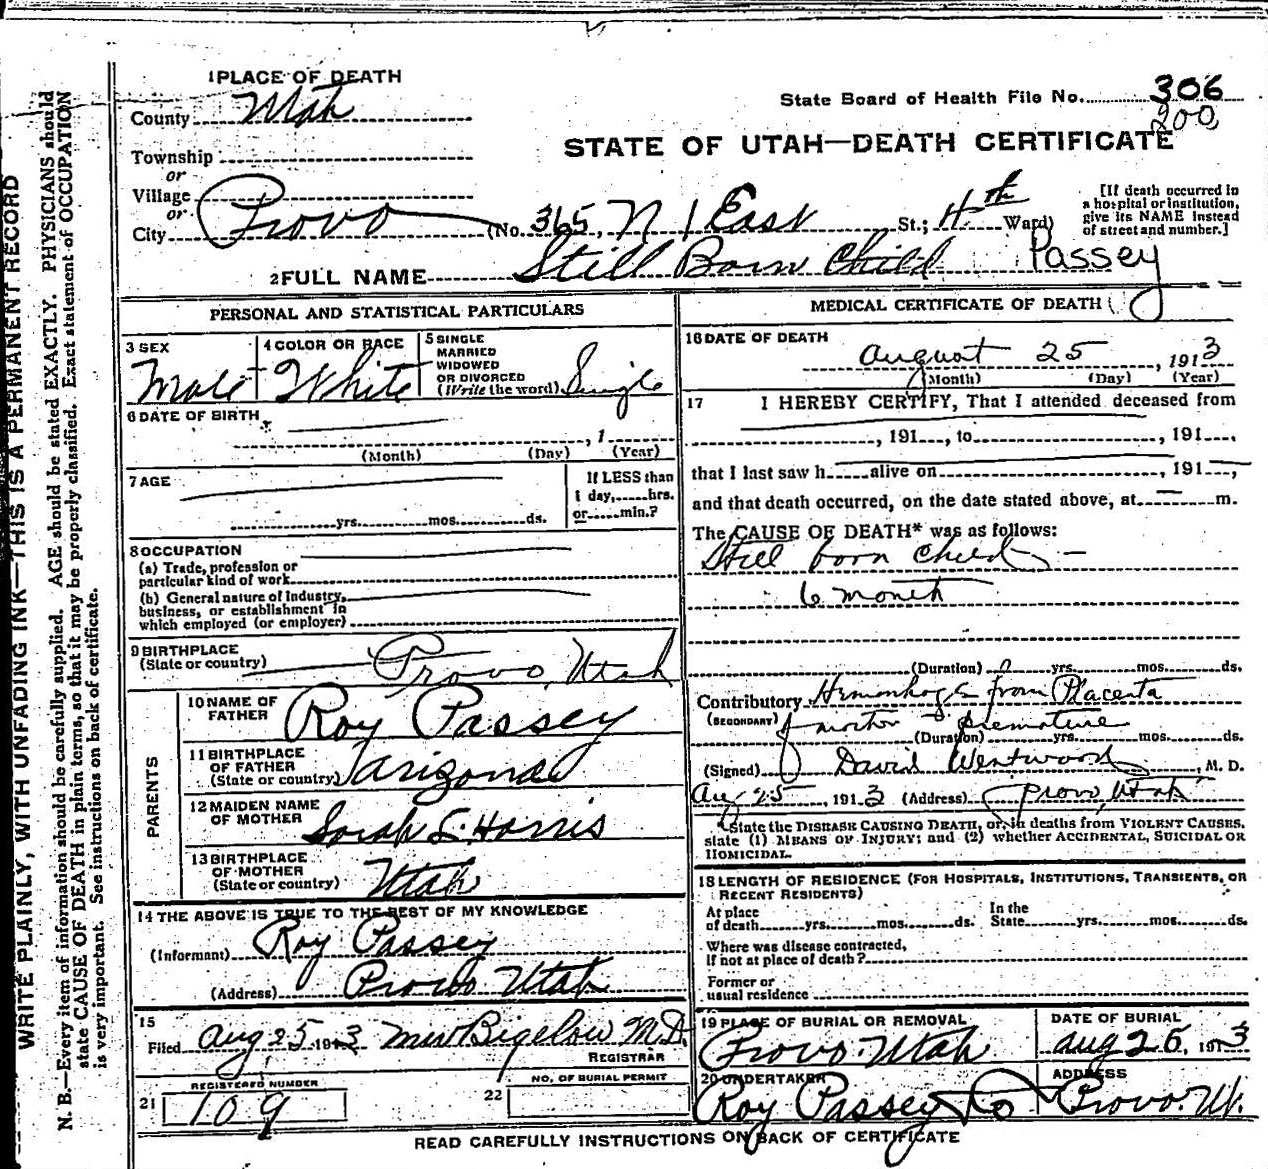 1 PLACE OF DEATH
County Utah
State Board of Health File No. 306
200
Township
or
Village
or
City Provo
STATE OF UTAH—DEATH CERTIFICATE
(No. 365, N 1 East St.; 4th Ward)
[If death occurred in
a hospital or institution,
give its NAME instead
of street and number.]
2 FULL NAME Still Born Child Passey
PERSONAL AND STATISTICAL PARTICULARS
3 SEX
Male
4 COLOR OR RACE
White
5 SINGLE
MARRIED
WIDOWED
OR DIVORCED
(Write the word) Single
6 DATE OF BIRTH
, 1
(Month) (Day) (Year)
7 AGE
yrs. mos. ds.
If LESS than
1 day, hrs.
or min.?
8 OCCUPATION
(a) Trade, profession or
particular kind of work
(b) General nature of Industry,
business, or establishment in
which employed (or employer)
9 BIRTHPLACE
(State or country) Provo, Utah
PARENTS
10 NAME OF
FATHER Roy Passey
11 BIRTHPLACE
OF FATHER
(State or country) Arizona
12 MAIDEN NAME
OF MOTHER Sarah L. Harris
13 BIRTHPLACE
OF MOTHER
(State or country) Utah
14 THE ABOVE IS TRUE TO THE BEST OF MY KNOWLEDGE
(Informant) Roy Passey
(Address) Provo Utah
15
Filed Aug 25 1913 Bigelow M.D.
REGISTRAR
REGISTERED NUMBER
21 109
NO. OF BURIAL PERMIT
22
MEDICAL CERTIFICATE OF DEATH
16 DATE OF DEATH
August 25, 1913
(Month) (Day) (Year)
17 I HEREBY CERTIFY, That I attended deceased from
, 191 , to , 191 ,
that I last saw h alive on , 191 ,
and that death occurred, on the date stated above, at m.
The CAUSE OF DEATH* was as follows:
Still born Child —
6 month
(Duration) yrs. mos. ds.
Contributory Hemorrhage from Placenta
(SECONDARY) premature
(Duration) yrs. mos. ds.
(Signed) David Westwood, M. D.
Aug 25, 1913 (Address) Provo, Utah
*State the DISEASE CAUSING DEATH, or, in deaths from VIOLENT CAUSES,
state (1) MEANS OF INJURY; and (2) whether ACCIDENTAL, SUICIDAL OR
HOMICIDAL.
18 LENGTH OF RESIDENCE (FOR HOSPITALS, INSTITUTIONS, TRANSIENTS, OR
RECENT RESIDENTS)
At place
of death yrs. mos. ds.
In the
State yrs. mos. ds.
Where was disease contracted,
If not at place of death?
Former or
usual residence
19 PLACE OF BURIAL OR REMOVAL
Provo. Utah
DATE OF BURIAL
Aug 26, 1913
20 UNDERTAKER
Roy Passey
ADDRESS
Provo. Ut.
READ CAREFULLY INSTRUCTIONS ON BACK OF CERTIFICATE
WRITE PLAINLY, WITH UNFADING INK—THIS IS A PERMANENT RECORD
N. B.—Every item of information should be carefully supplied. AGE should be stated EXACTLY. PHYSICIANS should
state CAUSE OF DEATH in plain terms, so that it may be properly classified. Exact statement of OCCUPATION
is very important. See instructions on back of certificate.